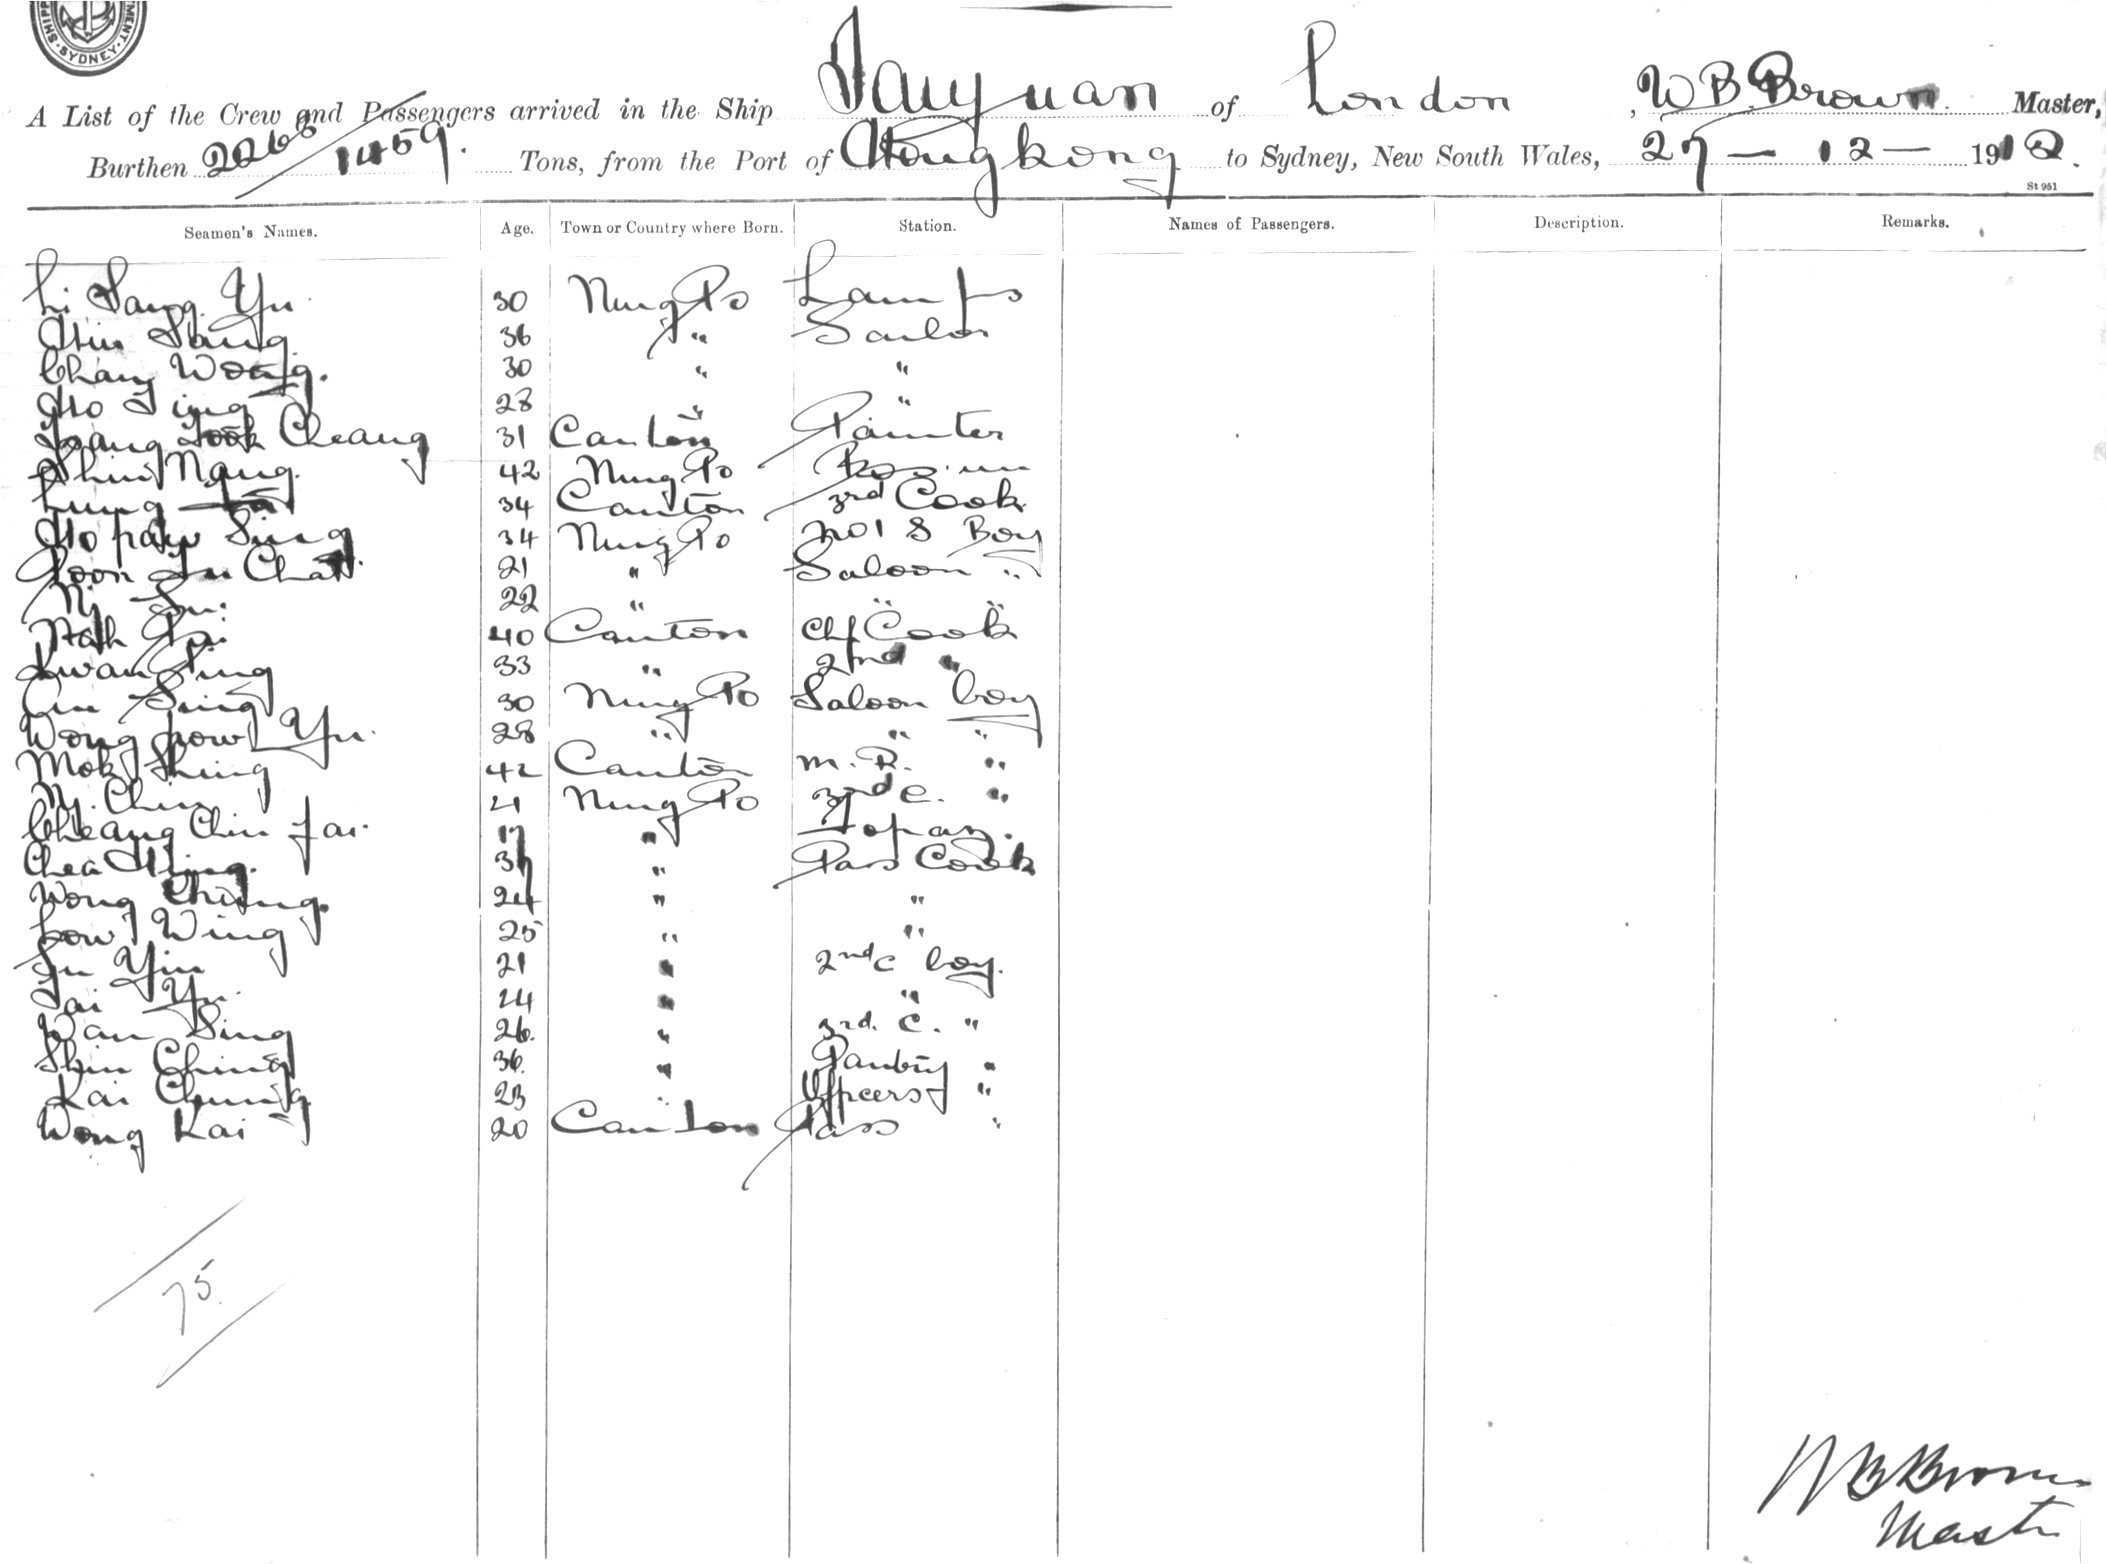 SYDNEY
A List of the Crew and Passengers arrived in the Ship Taiyuan of London, W B Brown Master,
Burthen 2268 / 1459. Tons, from the Port of Hongkong to Sydney, New South Wales, 27 — 12 — 1912.
St 951
Seamen's Names. Age. Town or Country where Born. Station. Names of Passengers. Description. Remarks.
Li Sang Yu 30 Ning Po Lamps
36 " Sailor
Chang Wong. 30 " "
Ho 28 " "
Cheang 31 Canton Painter
42 Ning Po
Lung 34 Canton 3rd Cook
Ho Sing 34 Ning Po No 1 S Boy
21 " Saloon "
22 " " "
40 Canton Chf Cook
Kwan Ping 33 " 2nd "
Sing 30 Ning Po Saloon boy
Wong pow Yu. 28 " " "
Mok Shing 42 Canton M. R. "
Chin 21 Ning Po C. "
Cheang Chin 17 " Topaz.
" Pass Cook
Wong Chung. 24 " "
Low Wing 25 " "
Yin 21 " 2nd C boy.
Tai Yu. 24 " "
Wan Sing 26. " 3rd. C. "
Shin Ching 36. " Pantry "
Kai Chung 23 " Officers "
Wong Kai 20 Canton Pass "
75.
W B Brown
Master